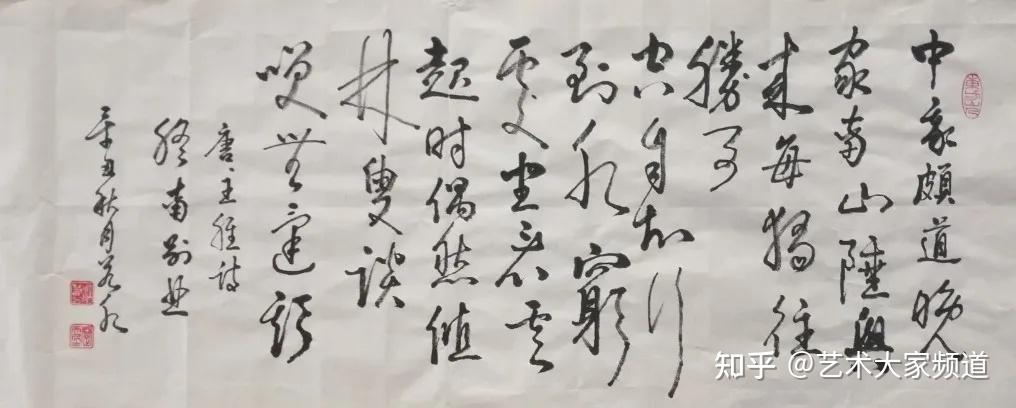 中歲頗道晚
家南山陲興
来每獨往
勝事
空自知行
到水窮
處坐看雲
起时偶然值
林叟談
笑無還期
唐王維詩
終南别业
辛丑秋月若水
知乎 @艺术大家频道